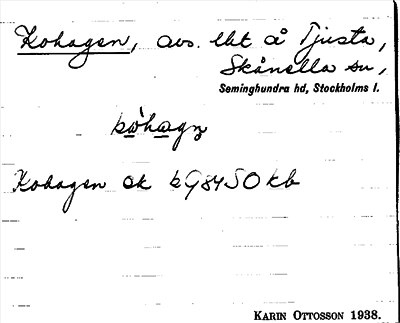 Kohagen, avs. lht å Tjusta,
Skånella sn,
Seminghundra hd, Stockholms l.
Kohagen ek
KARIN OTTOSSON 1938.